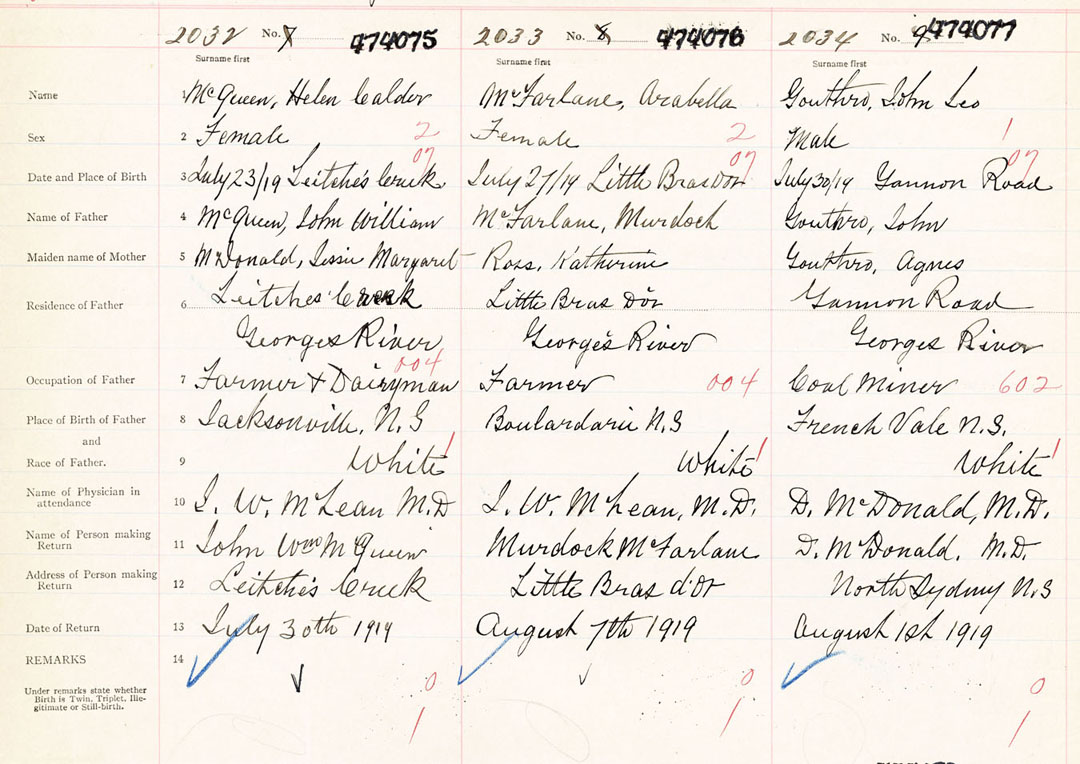 2032 No. 7 474075 2033 No. 8 474076 2034 No. 9 474077
Surname first Surname first Surname first
Name 1 McQueen, Helen Calder McFarlane, Arabella Gouthro, John Leo
Sex 2 Female 2 Female 2 Male 1
07 07 07
Date and Place of Birth 3 July 23/19 Leitche's Creek July 27/19 Little Bras Dor July 30/19 Gannon Road
Name of Father 4 McQueen, John William McFarlane, Murdoch Gouthro, John
Maiden name of Mother 5 McDonald, Jessie Margaret Ross, Katherine Gouthro, Agnes
Residence of Father 6 Leitches Creek Little Bras Dor Gannon Road
Georges River George's River Georges River
004
Occupation of Father 7 Farmer & Dairyman Farmer 004 Coal Miner 602
Place of Birth of Father 8 Jacksonville, N.S Boulardarie N.S French Vale N.S.
and
Race of Father. 9 White 1 White 1 White 1
Name of Physician in
attendance 10 J. W. McLean M.D J. W. McLean, M.D. D. McDonald, M.D.
Name of Person making
Return 11 John Wm McQueen Murdock McFarlane D. McDonald. M.D.
Address of Person making
Return 12 Leitche's Creek Little Bras d'Or North Sydney N.S
Date of Return 13 July 30th 1919 August 7th 1919 August 1st 1919
REMARKS 14
Under remarks state whether
Birth is Twin, Triplet, Ille-
gitimate or Still-birth.
0 0 0
1 1 1